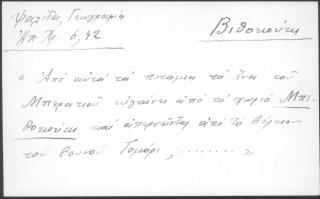 Ψαλίδα, Γεωγραφία
Ἠπ. Χρ. 6, 42
Βιθοκούκι
"Ἀπό αὐτά τά ποτάμια τό ἕνα τοῦ
Μπερατιοῦ εὐγαίνει ἀπό τό χωριό Μπι-
θοκούκι καί ἀπερνῶντας ἀπό τό βόρειον
τοῦ βουνοῦ Τομόρι, ........"